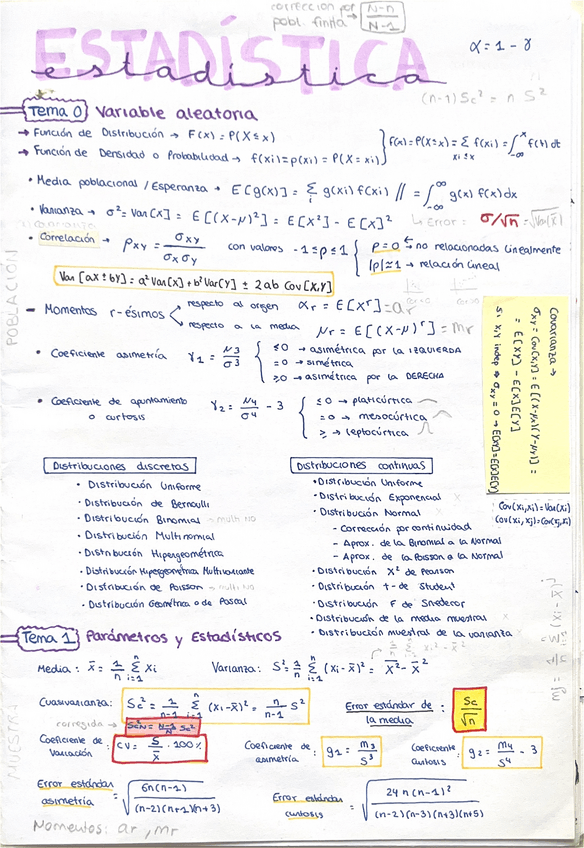 corrección por
pobl. finita → N-n / N-1
ESTADÍSTICA
estadística
α = 1 - γ
(n-1) Sc² = n S²
Tema 0 Variable aleatoria
→ Función de Distribución → F(x) = P(X ≤ x)
→ Función de Densidad o Probabilidad → f(xi) = p(xi) = P(X = xi)
F(x) = P(X ≤ x) = Σ xi ≤ x f(xi) = ∫ -∞ x f(t) dt
• Media poblacional / Esperanza → E[g(x)] = Σ i g(xi) f(xi) // = ∫ -∞ ∞ g(x) f(x) dx
• Varianza → σ² = Var[X] = E[(X-μ)²] = E[X²] - E[X]²
↳ Error: σ/√n = √Var(x̄)
• Correlación → ρxy = σxy / σx σy con valores -1 ≤ ρ ≤ 1
ρ = 0 → no relacionadas linealmente
|ρ| ≈ 1 → relación lineal
Var[aX ± bY] = a² Var[X] + b² Var[Y] ± 2ab Cov[X,Y]
POBLACIÓN
- Momentos r-ésimos
respecto al origen αr = E[X^r] = ar
respecto a la media μr = E[(X-μ)^r] = mr
• Coeficiente asimetría γ1 = μ3 / σ³
≤0 → asimétrica por la IZQUIERDA
=0 → simétrica
≥0 → asimétrica por la DERECHA
• Coeficiente de apuntamiento
o curtosis
γ2 = μ4 / σ⁴ - 3
≤0 → platicúrtica
=0 → mesocúrtica
≥ → leptocúrtica
Covarianza →
σxy = Cov(X,Y) = E[(X-μx)(Y-μy)] =
= E[XY] - E[X]E[Y]
Si X,Y indep → σxy = 0 → E[XY]=E[X]E[Y]
Cov(Xi,Xi) = Var(Xi)
Cov(Xi,Xj) = Cov(Xj,Xi)
Distribuciones discretas
• Distribución Uniforme
• Distribución de Bernoulli
• Distribución Binomial → multi NO
• Distribución Multinomial
• Distribución Hipergeométrica
• Distribución Hipergeométrica Multivariante
• Distribución de Poisson → multi NO
• Distribución Geométrica o de Pascal
Distribuciones continuas
• Distribución Uniforme
• Distribución Exponencial
• Distribución Normal
- Corrección por continuidad
- Aprox. de la Binomial a la Normal
- Aprox. de la Poisson a la Normal
• Distribución X² de Pearson
• Distribución t- de Student
• Distribución F de Snedecor
• Distribución de la media muestral
• Distribución muestral de la varianza
Tema 1 Parámetros y Estadísticos
Media: x̄ = 1/n Σ i=1 n xi
Varianza: S² = 1/n Σ i=1 n (xi - x̄)² = X̄² - x̄²
mj = 1/n Σ i=1 n (xi - x̄)^j
Cuasivarianza: Sc² = 1/n-1 Σ i=1 n (xi - x̄)² = n/n-1 S²
Error estándar de
la media : Sc/√n
corregida → Sc²N = N-1/N Sc²
MUESTRA
Coeficiente de
variación : CV = S/x̄ · 100%
Coeficiente de
asimetría : g1 = m3/S³
Coeficiente
curtosis : g2 = m4/S⁴ - 3
Error estándar
asimetría = √ 6n(n-1) / (n-2)(n+1)(n+3)
Error estándar
curtosis = √ 24n(n-1)² / (n-2)(n-3)(n+3)(n+5)
Momentos: ar, mr